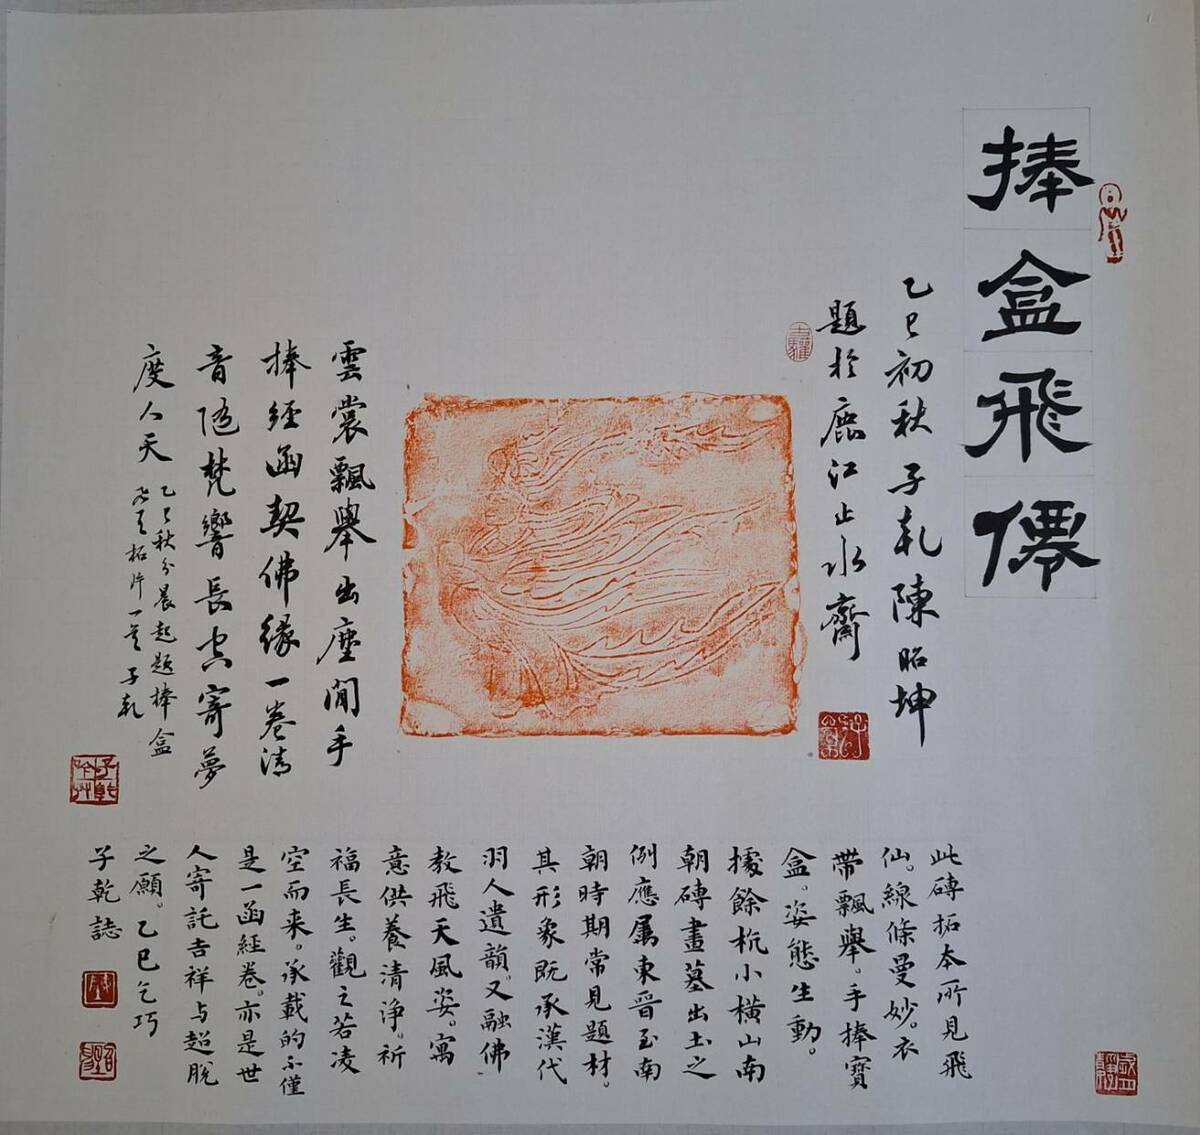 捧盒飛僊
乙巳初秋子乾陳昭坤
題於鹿江止水齋
雲裳飄舉出塵閒手
捧經函契佛緣一卷清
音隨梵響長空寄夢
度人天
乙巳秋分晨起題捧盒
飛天拓片一首子乾
此磚拓本所見飛
仙。線條曼妙。衣
帶飄舉。手捧寶
盒。姿態生動。
據餘杭小橫山南
朝磚畫墓出土之
例應屬東晉至南
朝時期常見題材。
其形象既承漢代
羽人遺韻。又融佛
教飛天風姿。寓
意供養清淨。祈
福長生。觀之若凌
空而来。承載的不僅
是一函經卷。亦是世
人寄託吉祥与超脫
之願。乙巳乞巧
子乾誌